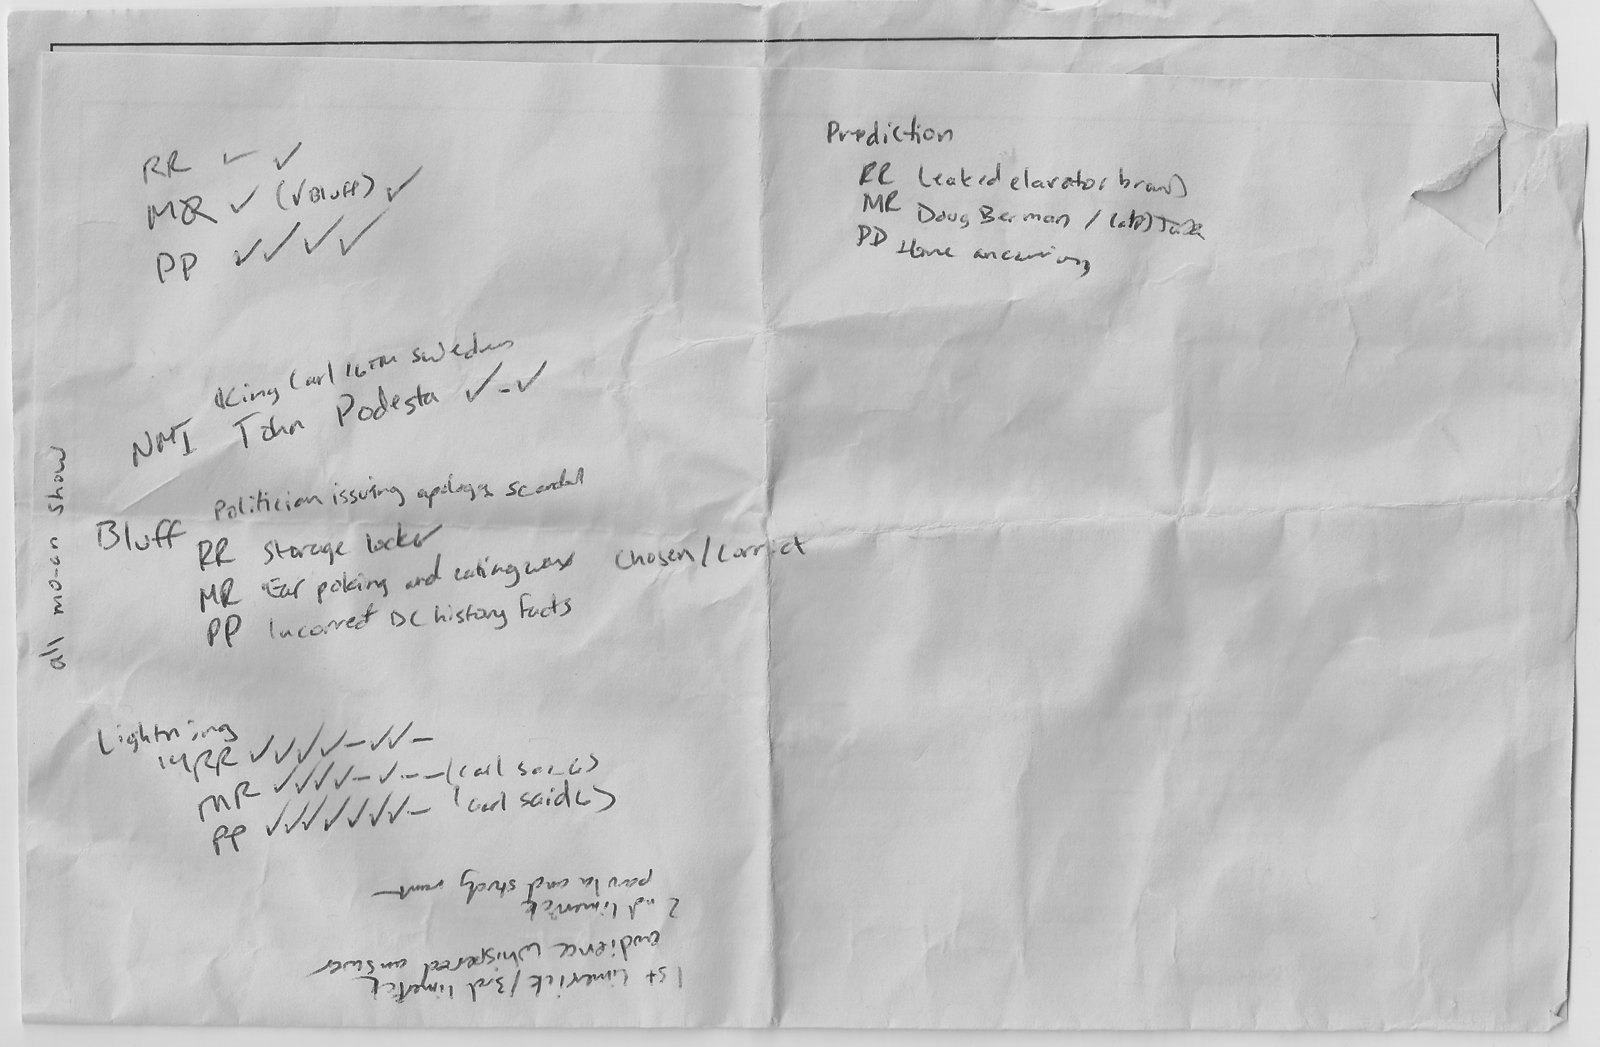 RR ✓ ✓
MR ✓ (✓Bluff) ✓
PP ✓ ✓ ✓ ✓
King Carl 16TH Sweden
NMJ John Podesta ✓ - ✓
all mo-an show
Politician issuing apology scandal
Bluff
RR Storage locker
MR Ear poking and eating wax Chosen/Correct
PP Incorrect DC history facts
Lightning
14 RR ✓✓✓✓-✓✓-
MR ✓✓✓✓-✓--- (Carl said 6)
PP ✓✓✓✓✓✓✓- (Carl said 6)
1st limerick/3rd limerick
audience whispered answer
2nd limerick
paula and study rant
Prediction
RR Leaked elavator brawl
MR Doug Berman /
PD Home